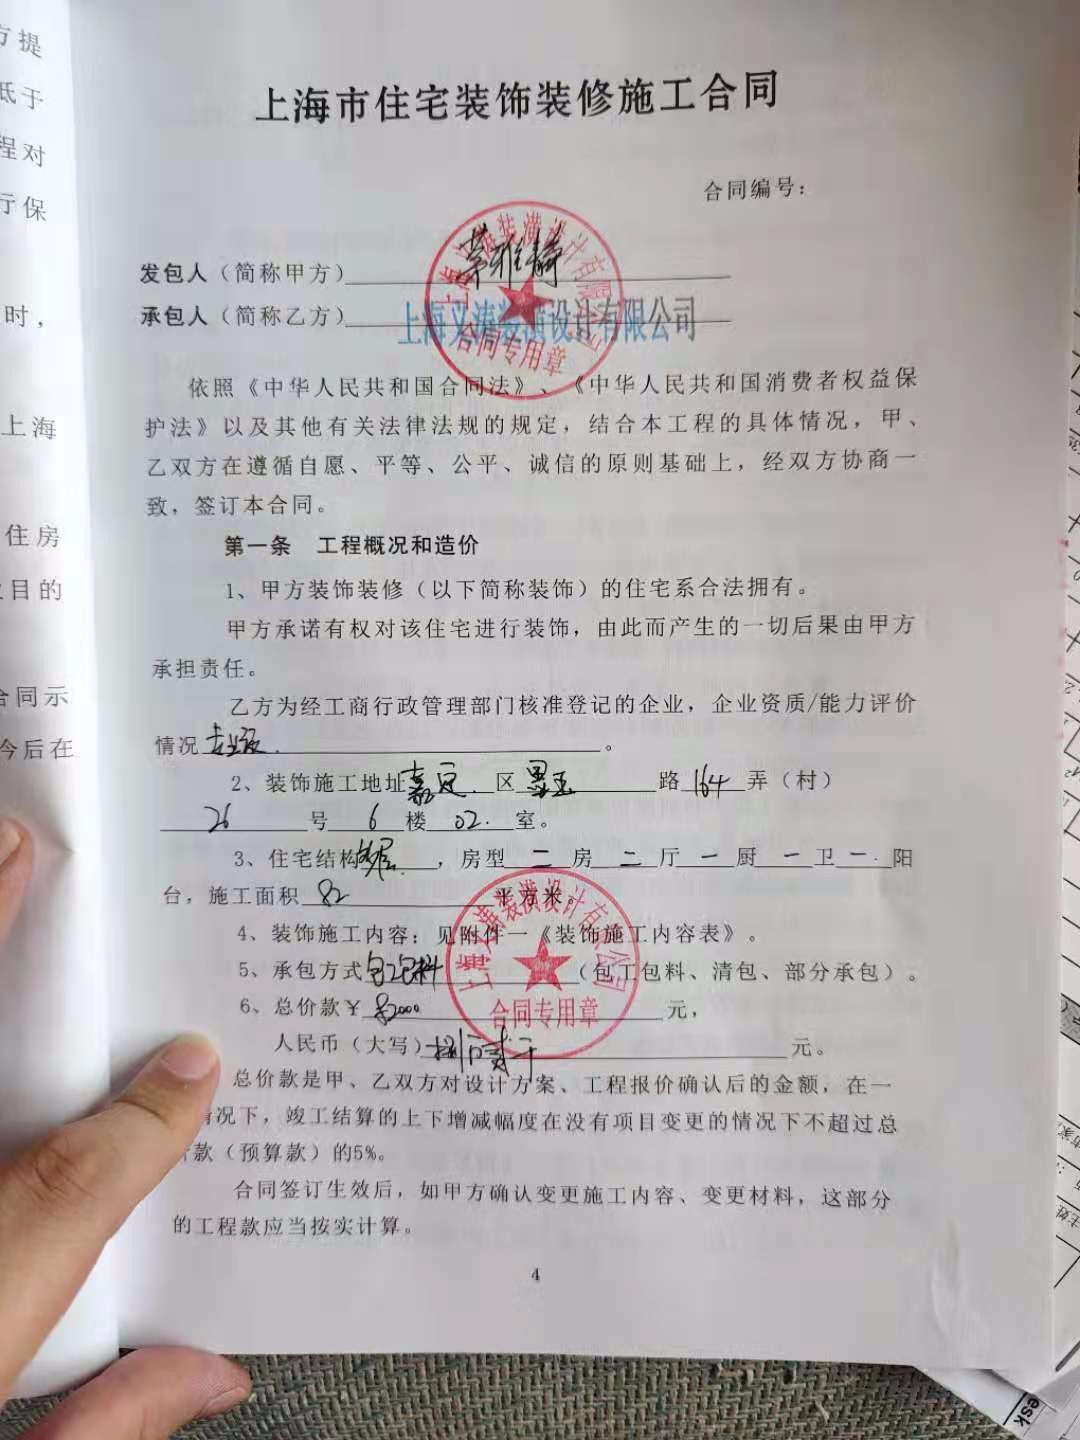 方提
低于
程对
行保
时，
上海
住房
目的
合同示
今后在
上海市住宅装饰装修施工合同
合同编号：
发包人（简称甲方）雅静
承包人（简称乙方）上海义清装潢设计有限公司
合同专用章
依照《中华人民共和国合同法》、《中华人民共和国消费者权益保
护法》以及其他有关法律法规的规定，结合本工程的具体情况，甲、
乙双方在遵循自愿、平等、公平、诚信的原则基础上，经双方协商一
致，签订本合同。
第一条 工程概况和造价
1、甲方装饰装修（以下简称装饰）的住宅系合法拥有。
甲方承诺有权对该住宅进行装饰，由此而产生的一切后果由甲方
承担责任。
乙方为经工商行政管理部门核准登记的企业，企业资质/能力评价
情况 专业级。
2、装饰施工地址 嘉定 区 墨玉 路 164 弄（村）
26 号 6 楼 02. 室。
3、住宅结构 ，房型 二 房 二 厅 一 厨 一 卫 一 阳
台，施工面积 82 平方米。
4、装饰施工内容：见附件一《装饰施工内容表》。
5、承包方式 包工包料 （包工包料、清包、部分承包）。
6、总价款￥ 82000 元，
合同专用章
人民币（大写） 元。
总价款是甲、乙双方对设计方案、工程报价确认后的金额，在一
情况下，竣工结算的上下增减幅度在没有项目变更的情况下不超过总
款（预算款）的5%。
合同签订生效后，如甲方确认变更施工内容、变更材料，这部分
的工程款应当按实计算。
4
esk